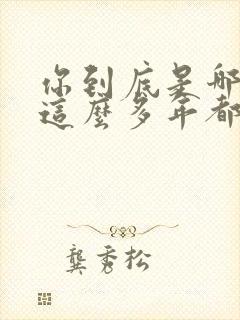 你到底是哪
這麼多年都
龔秀松